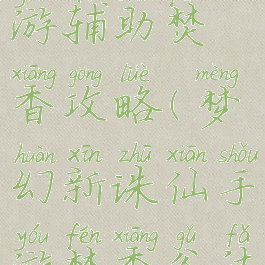 游辅助焚
xiāng gōng lüè mèng
香攻略(梦
huàn xīn zhū xiān shǒu
幻新诛仙手
yóu fén xiāng gǔ fǎ
游焚香谷法